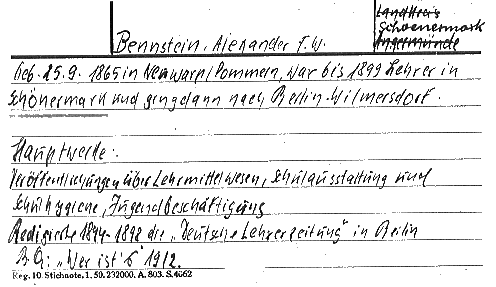 Landkreis
Schoenermark
Angermünde
Bennstein, Alexander F.W.
Geb. 25.9. 1865 in Neuwarp/Pommern, war bis 1899 Lehrer in
Schönermark und ging dann nach Berlin-Wilmersdorf.
Hauptwerke:
Veröffentlichungen über Lehrmittelwesen, Schulausstattung und
Schulhygiene, Jugendbeschäftigung
Redigierte 1894-1898 die "Deutsche Lehrerzeitung" in Berlin
BQ: "Wer ist's" 1912.
Reg. 10 Stichnote, 1. 50. 232000. A. 803. S. 4662